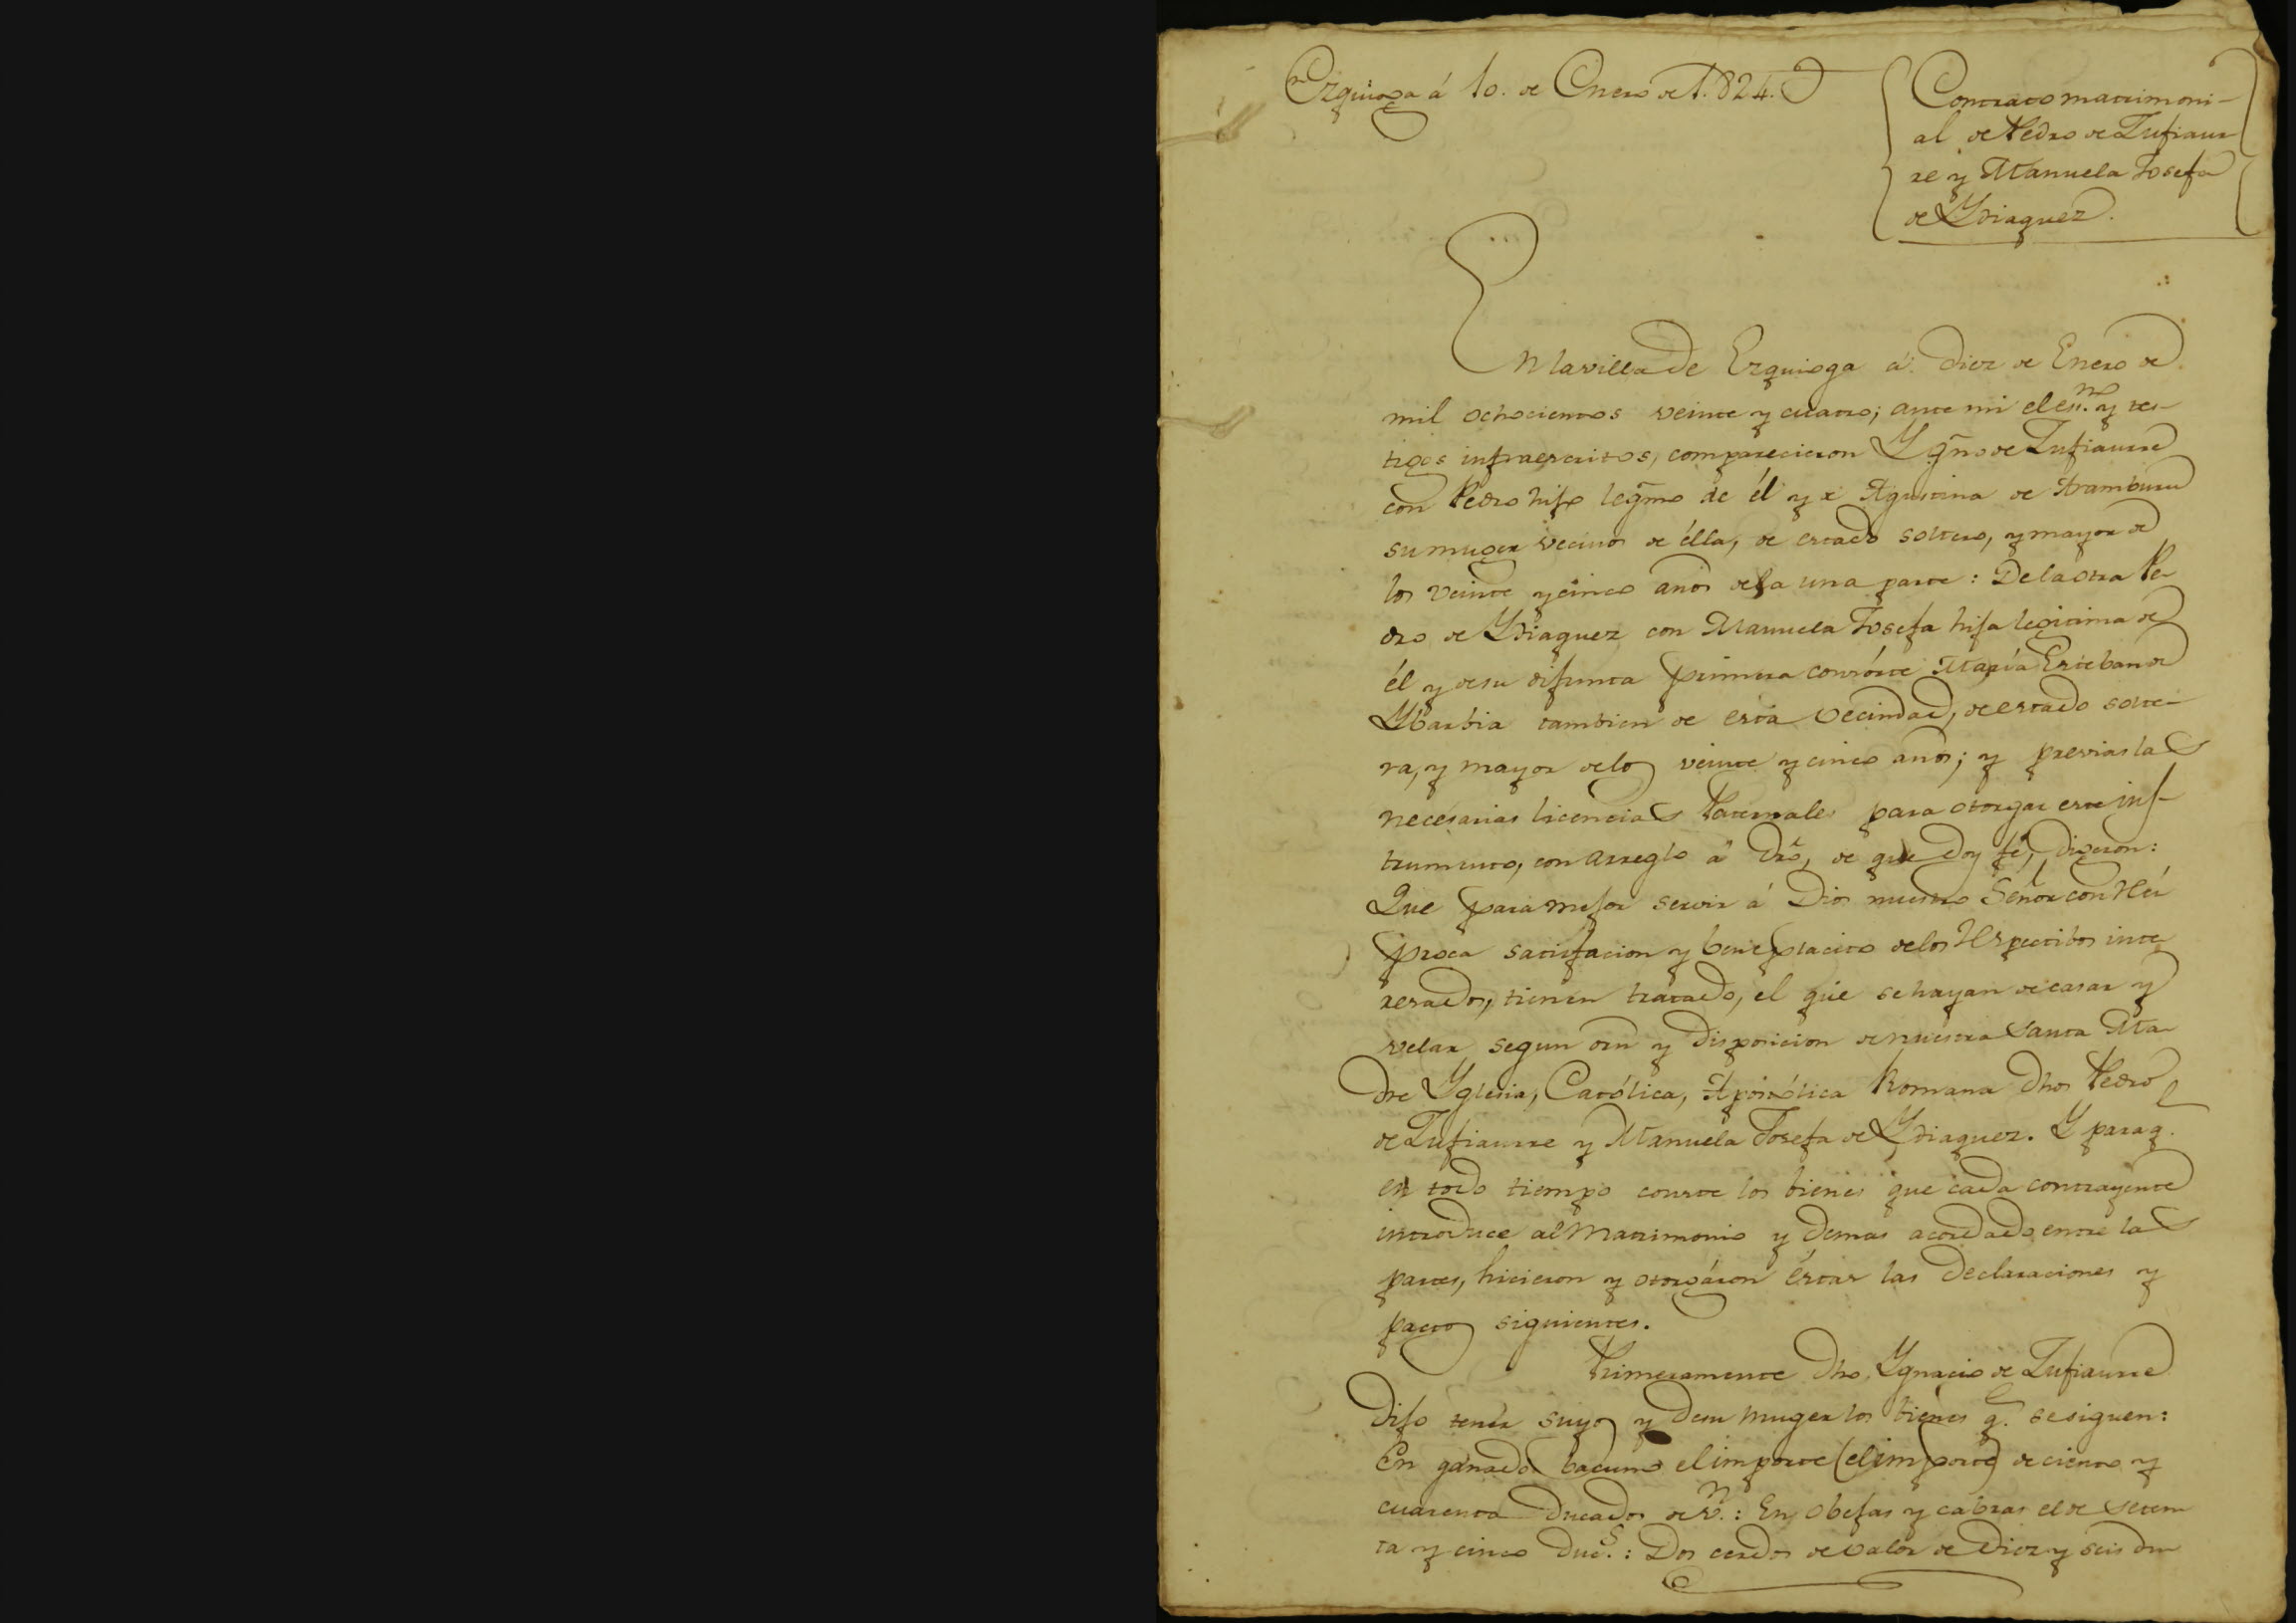 Ezquioga á 10. de Enero de 1.824.
Contrato matrimoni-
al de Pedro de Zufiaur-
re y Manuela Josefa
de Ydiaquez.
En la villa de Ezquioga á diez de Enero de
mil ochocientos veinte y cuatro; ante mi el es.no y tes-
tigos infraescritos, comparecieron Ygno de Zufiaurre
con Pedro hijo legmo de él y de Agustina de Aramburu
su muger vecinos de élla, de estado soltero, y mayor de
los veinte y cinco años de la una parte: De la otra Pe-
dro de Ydiaquez con Manuela Josefa hija legitima de
él y de su difunta primera consórte María Esteban de
Ybarbia tambien de esta vecindad, de estado solte-
ra, y mayor de los veinte y cinco años; y previas las
necesarias licencias Paternales para otorgar este ins-
trumento, con arreglo á dro, de que doy fé, digeron:
Que para mejor servir á Dios nuestro Señor con reci
proca satisfacion y beneplacito de los respectibos inte
resados, tienen tratado, el que se hayan de casar y
velar segun orn y disposicion de nuestra Santa Ma-
dre Yglesia, Católica, Apostólica Romana dhos Pedro
de Zufiaurre y Manuela Josefa de Ydiaquez. Y para q.
en todo tiempo conste los bienes que cada contrayente
introduce al Matrimonio y demas acordado entre las
partes, hicieron y otorgáron éstas las declaraciones y
pactos siguientes.
Primeramente dho Ygnacio de Zufiaurre
dijo tener suyos y de su muger los bienes q.e se siguen:
En ganado bacuno el importe (el importe) de ciento y
cuarenta Ducados de v.n: En obejas y cabras el de seten
ta y cinco duc.s: Dos cerdos de valor de diez y seis du